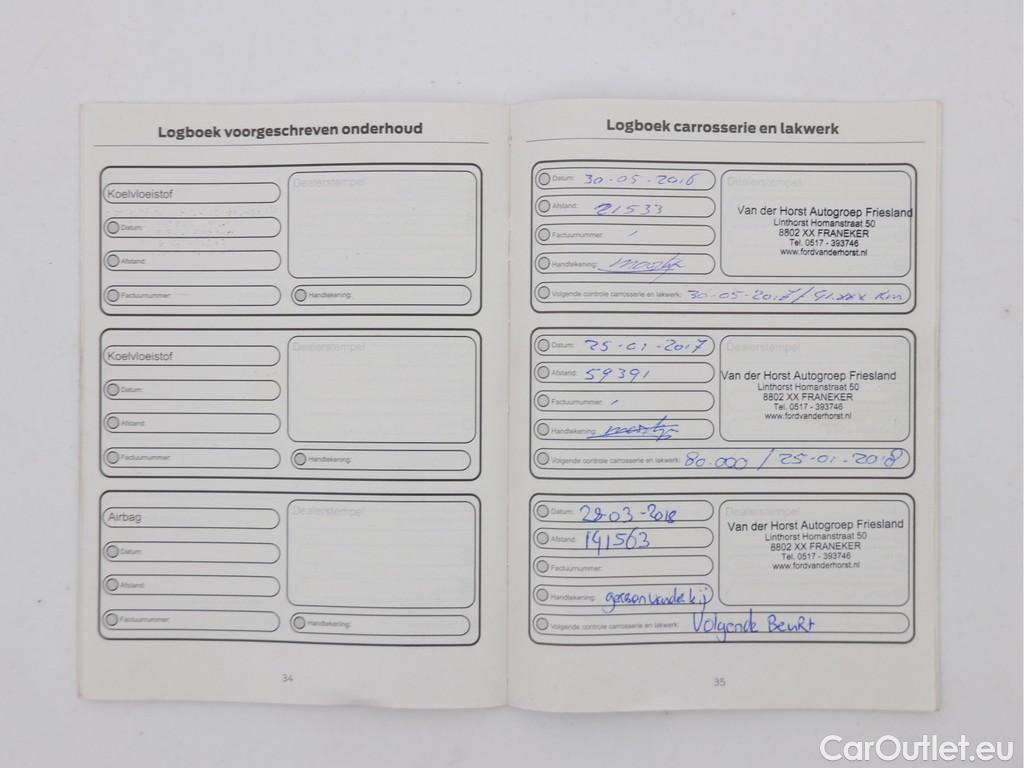 Logboek voorgeschreven onderhoud
Koelvloeistof
Dealerstempel
Datum:
Afstand:
Factuurnummer:
Handtekening:
Koelvloeistof
Dealerstempel
Datum:
Afstand:
Factuurnummer:
Handtekening:
Airbag
Dealerstempel
Datum:
Afstand:
Factuurnummer:
Handtekening:
34
Logboek carrosserie en lakwerk
Datum: 30-05-2016
Dealerstempel
Afstand: 21533
Van der Horst Autogroep Friesland
Linthorst Homanstraat 50
8802 XX FRANEKER
Tel. 0517 - 393746
www.fordvanderhorst.nl
Factuurnummer:
Handtekening:
Volgende controle carrosserie en lakwerk: 30-05-2017 / 91.xxx km
Datum: 25-01-2017
Dealerstempel
Afstand: 59391
Van der Horst Autogroep Friesland
Linthorst Homanstraat 50
8802 XX FRANEKER
Tel. 0517 - 393746
www.fordvanderhorst.nl
Factuurnummer:
Handtekening:
Volgende controle carrosserie en lakwerk: 80.000 / 25-01-2018
Datum: 28-03-2018
Dealerstempel
Afstand: 141563
Van der Horst Autogroep Friesland
Linthorst Homanstraat 50
8802 XX FRANEKER
Tel. 0517 - 393746
www.fordvanderhorst.nl
Factuurnummer:
Handtekening:
Volgende controle carrosserie en lakwerk: Volgende Beurt
35
CarOutlet.eu